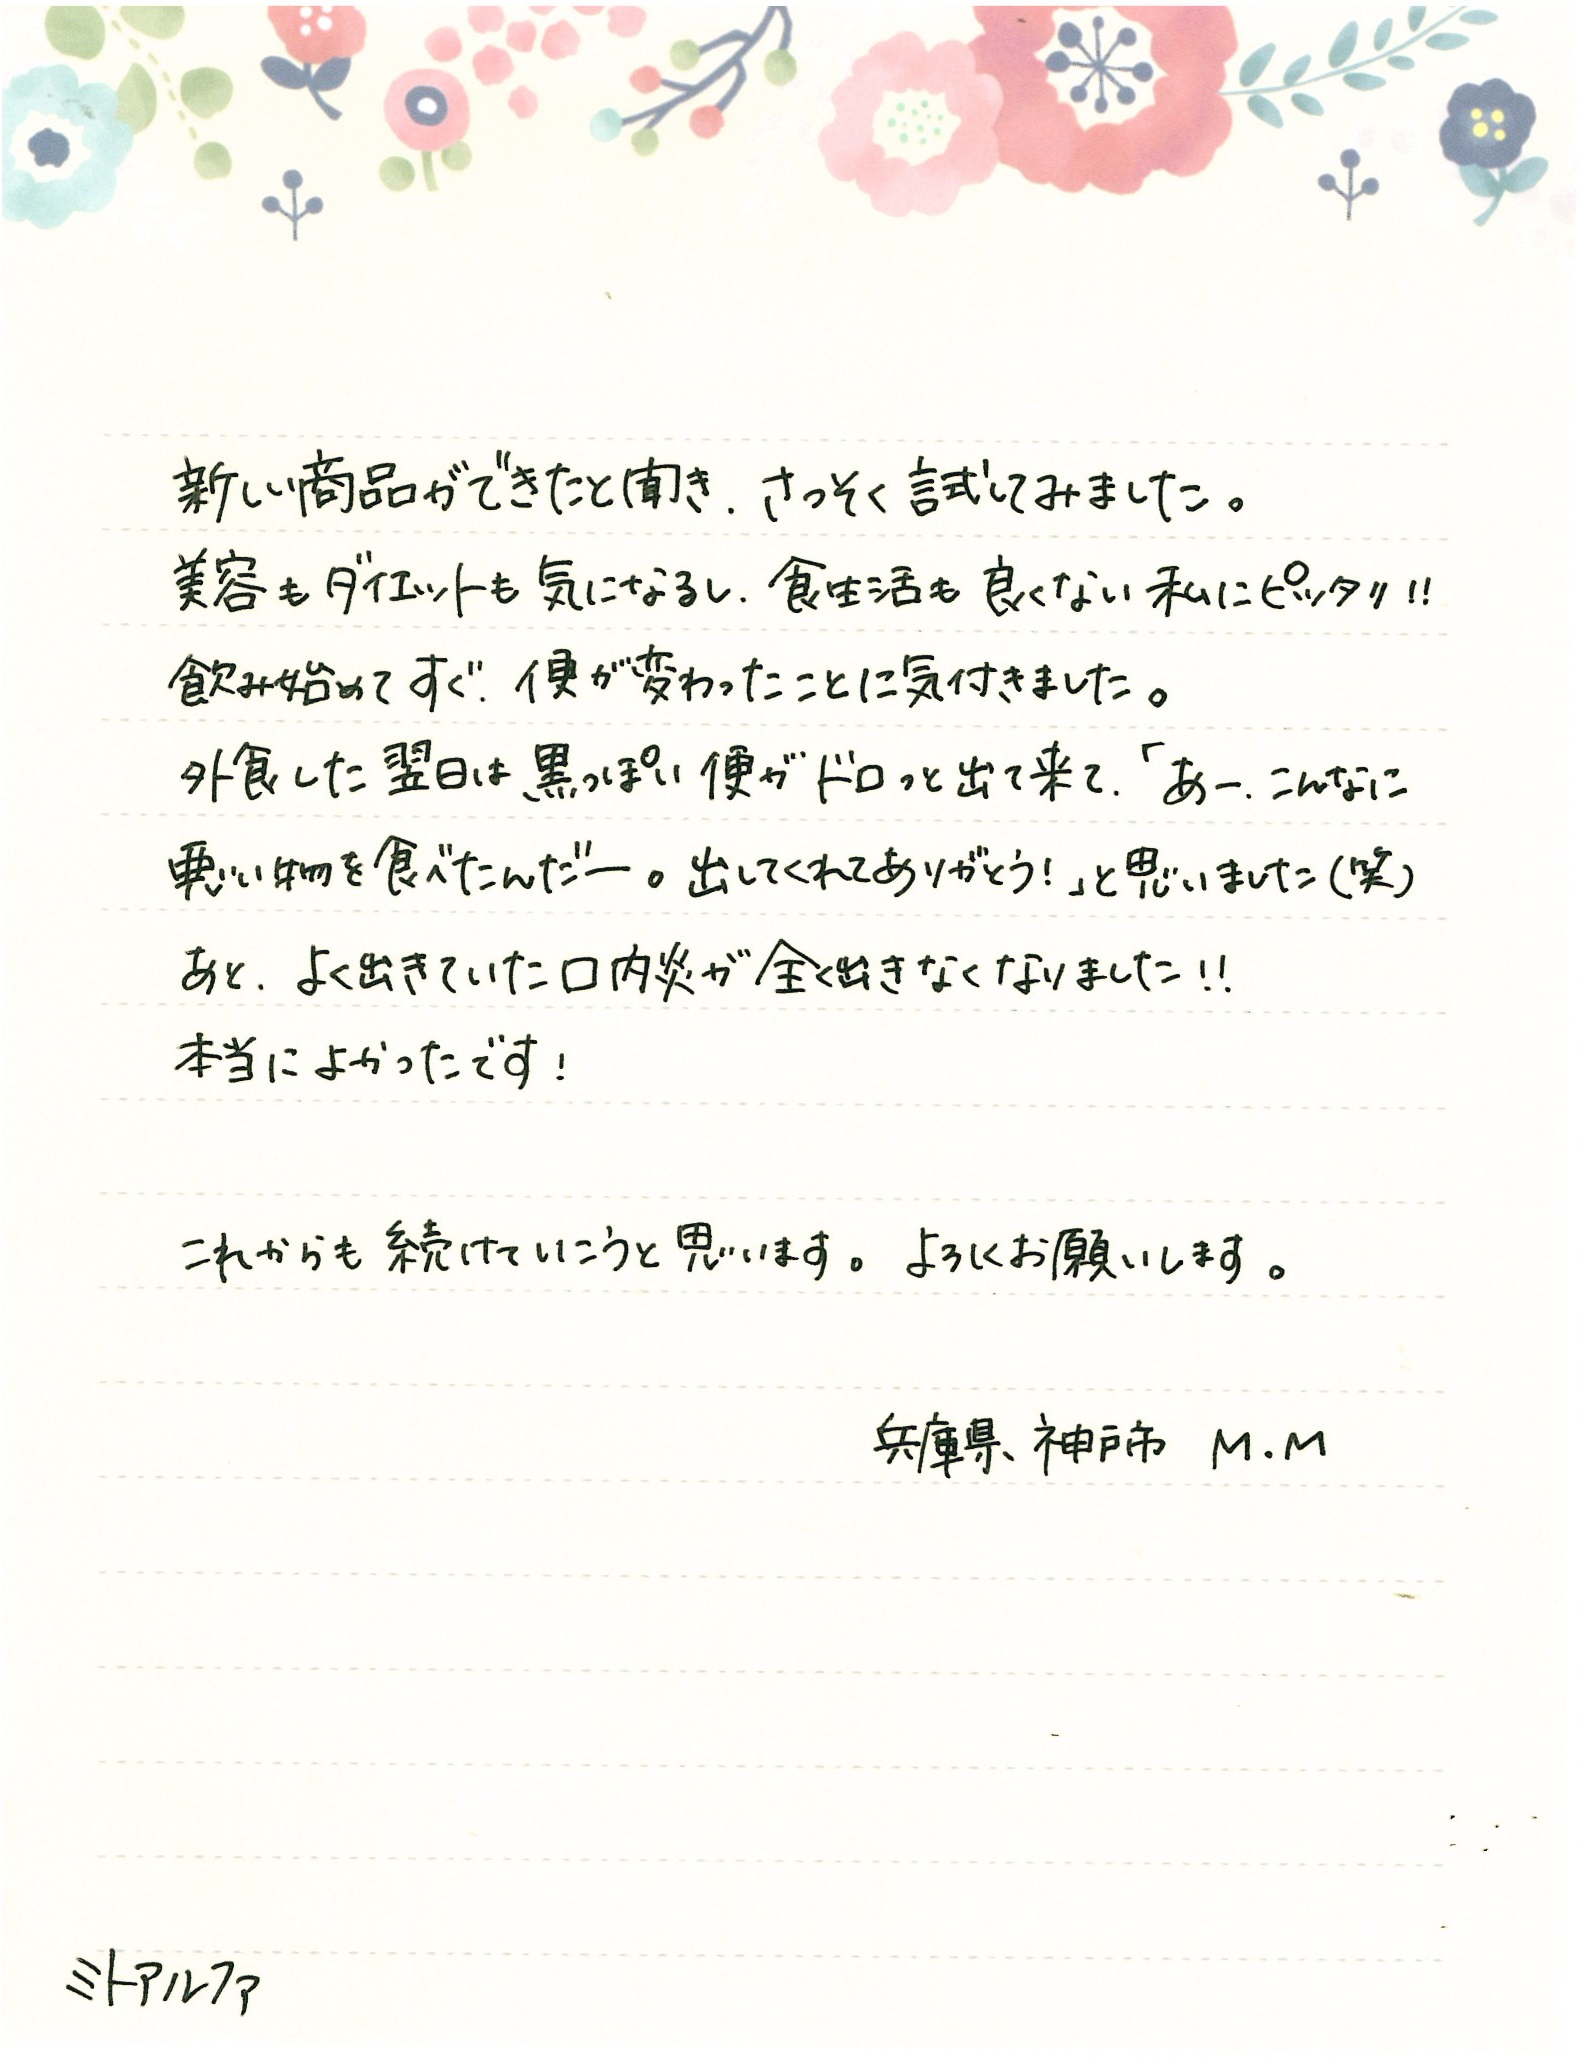 新しい商品ができたと聞き、さっそく試してみました。
美容もダイエットも気になるし、食生活も良くない私にピッタリ!!
飲み始めてすぐ、便が変わったことに気付きました。
外食した翌日は、黒っぽい便がドロっと出て来て、「あー、こんなに
悪い物を食べたんだー。出してくれてありがとう!」と思いました(笑)
あと、よく出きていた口内炎が全く出きなくなりました!!
本当によかったです!
これからも続けていこうと思います。よろしくお願いします。
兵庫県、神戸市 M.M
ミトアルファ